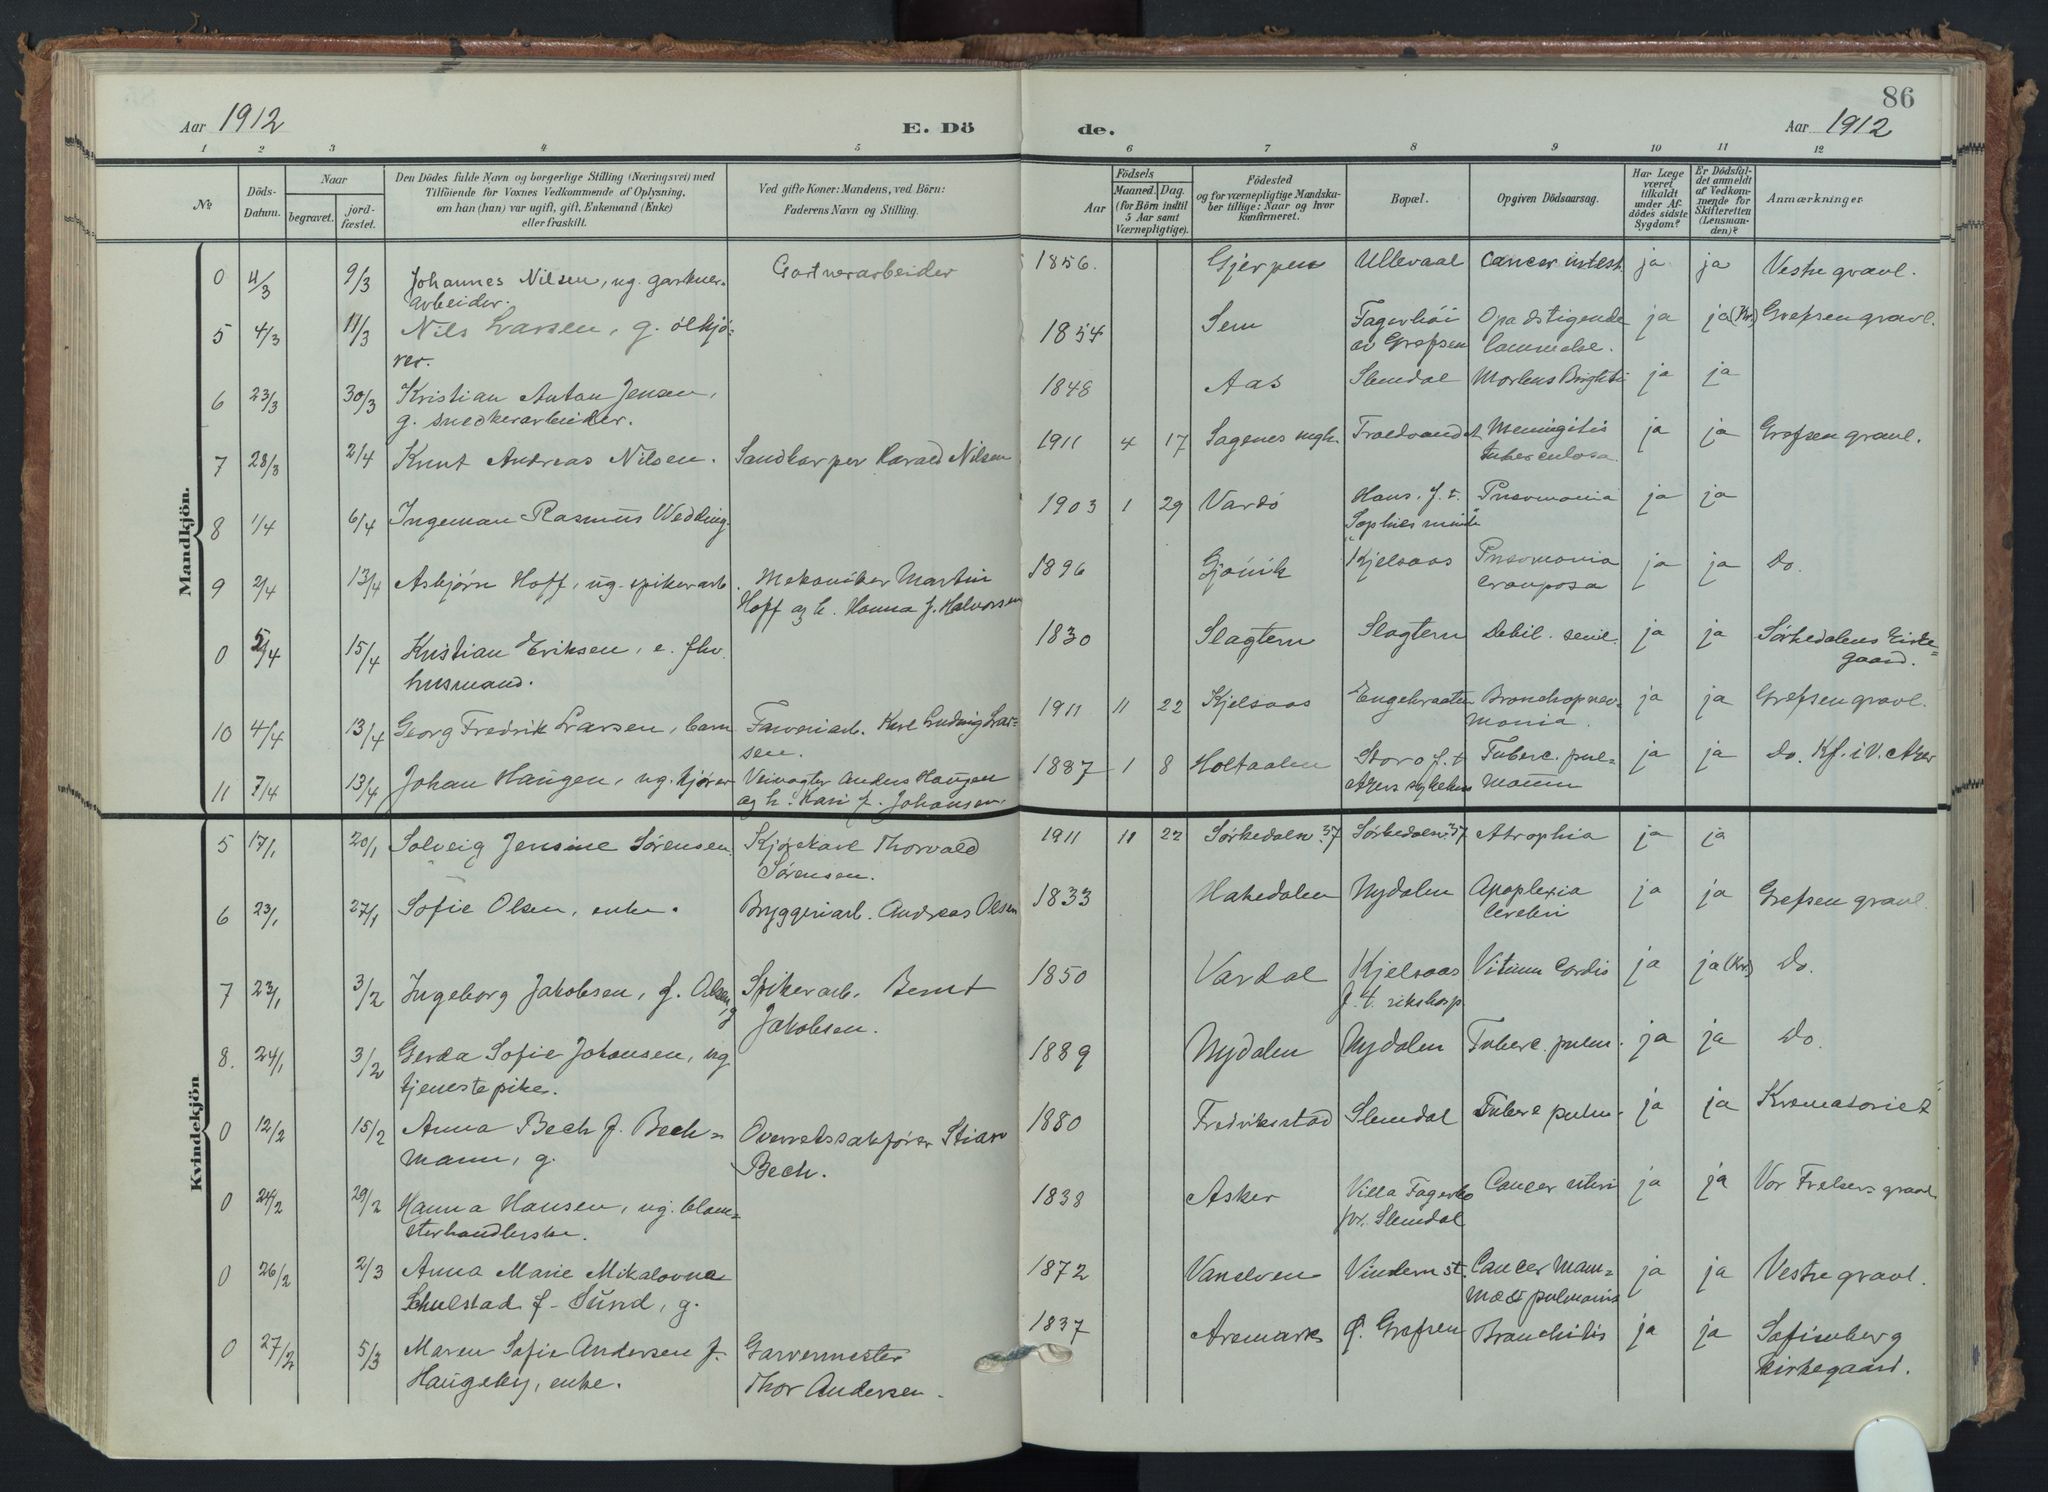 86
Aar 1912
E. Dö
de.
Aar 1912
1 2 3 4 5 6 7 8 9 10 11 12
№
Döds-
Datum.
Naar
begravet.
jord-
fæstet.
Den Dödes fulde Navn og borgerlige Stilling (Næringsvei) med
Tilföiende for Voxnes Vedkommende af Oplysning,
om han (hun) var ugift, gift, Enkemand (Enke)
eller fraskilt.
Ved gifte Koner: Mandens, ved Börn:
Faderens Navn og Stilling.
Födsels
Aar
Maaned.
Dag.
(for Börn indtil
5 Aar samt
Værnepligtige).
Födested
og for værnepligtige Mandska-
ber tillige: Naar og hvor
konfirmeret.
Bopæl.
Opgiven Dödsaarsag.
Har Læge
været
tilkaldt
under Af-
dödes sidste
Sygdom?
Er Dödsfal-
det anmeldt
af Vedkom-
mende for
Skifteretten
(Lensman-
den)?
Anmærkninger
Mandkjön.
0 4/3 9/3 Johannes Nilsen, ug. gartner-
arbeider.
Gartnerarbeider
1856. Gjerpen Ullevaal Cancer intest. ja ja Vestre gravl.
5 4/3 11/3 Nils Larsen, g. ölkjö-
rer.
1854 Sem Fagerhöi
av Grefsen
Opadstigende
Lammelse.
ja ja (Kr.) Grefsen gravl.
6 23/3 30/3 Kristian Anton Jensen,
g. snedkerarbeider.
1848 Aas Slemdal Morbus Brightii ja ja
7 28/3 2/4 Knut Andreas Nilsen. Sandkjører Harald Nilsen
1911 4 17 Sagenes mgh. Meningitis
tuberculosa.
ja ja Grefsen gravl.
8 1/4 6/4 Ingeman Rasmus Wedding.
1903 1 29 Vardö Hans. f. t.
Sophies minde
Pneomonia ja ja
9 2/4 13/4 Asbjørn Hoff, ug. spikerarb. Mekaniker Martin
Hoff og h. Hanna f. Halvorsen
1896 Gjövik Kjelsaas Pneomonia
crouposa
ja ja Do.
0 5/4 15/4 Kristian Eriksen, e. fhv.
husmand.
1830 Slagtern Slagtern Debil. senil. ja ja Sørkedalens kirke=
gaard.
10 4/4 13/4 Georg Fredrik Larsen, barn Farveriarb. Karl Ludvig Lar=
sen.
1911 11 22 Kjelsaas Engebraaten Bronchopnev-
monia.
ja ja Grefsen gravl.
11 7/4 13/4 Johan Haugen, ug. kjører Veivogter Anders Haugen
og h. Kari f. Johansen.
1887 1 8 Holtaalen Storo f. t.
Akers sykehus
Tuberc. pul=
monum
ja ja Do. Kf. i V. Aker
Kvindekjön
5 17/1 20/1 Solveig Jensine Sørensen. Kjørekarl Thorvald
Sørensen.
1911 11 22 Sørkedalsv. 37 Sørkedalsv. 37 Atrophia ja ja
6 23/1 27/1 Sofie Olsen, enke. Bryggeriarb. Andreas Olsen
1833 Hakedalen Nydalen Apoplexia
Cerebri
ja ja Grefsen gravl.
7 23/1 3/2 Ingeborg Jakobsen, f. Olsen, g Spikerarb. Bernt
Jakobsen.
1850 Vardal Kjelsaas
f. t. rikshosp.
Vitium Cordis ja ja (Kr.) Do.
8. 24/1 3/2 Gerda Sofie Johansen, ug
tjenestepike.
1889 Nydalen Nydalen Tuberc. pulm. ja ja Do.
0 12/2 15/2 Anna Bech f. Bech=
mann, g.
Overretssakfører Stian
Bech.
1880 Fredriksstad Slemdal Tuberc pulm. ja ja Krematoriet
0 24/2 29/2 Hanna Hansen, ug. blom=
sterhandlerske.
1838 Asker Villa Fagerbo
pr. Slemdal
Cancer uteri ja ja Vor Frelsers gravl.
0 26/2 2/3 Anna Marie Mikalovna
Schulstad f. Sund, g.
1872 Vanelven Vindern st. Cancer mam=
mæ & pulmonis
ja ja Vestre gravl.
0 27/2 5/3 Maren Sofie Andersen f.
Haugeby, enke.
Garvermester
Thor Andersen.
1837 Aremark Ö. Grefsen Bronchitis ja ja Sofienberg
kirkegaard.